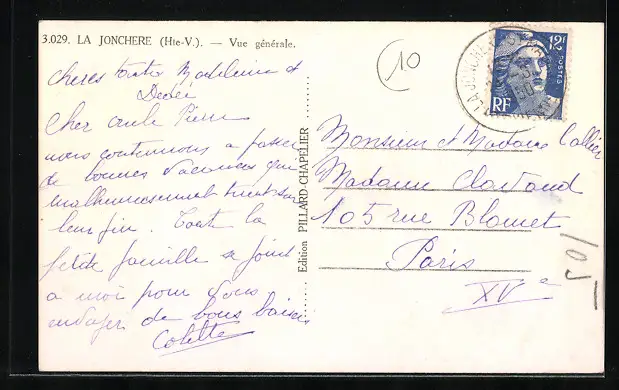 3.029. LA JONCHERE (Hte-V.). — Vue générale.
cheres tantes Madeleine et
Dédée
Cher oncle Pierre
nous continuons a passer
de bonnes vacances qui
malheureusement tirent sur
leur fin. Toute la
petite famille se joint
a moi pour vous
envoyer de bons baisers
Colette
Edition PILLARD-CHAPELIER
10
LA JONCHERE
12F
POSTES
RF
Monsieur et Madame
Madame
105 rue Blomet
Paris
XVe
105